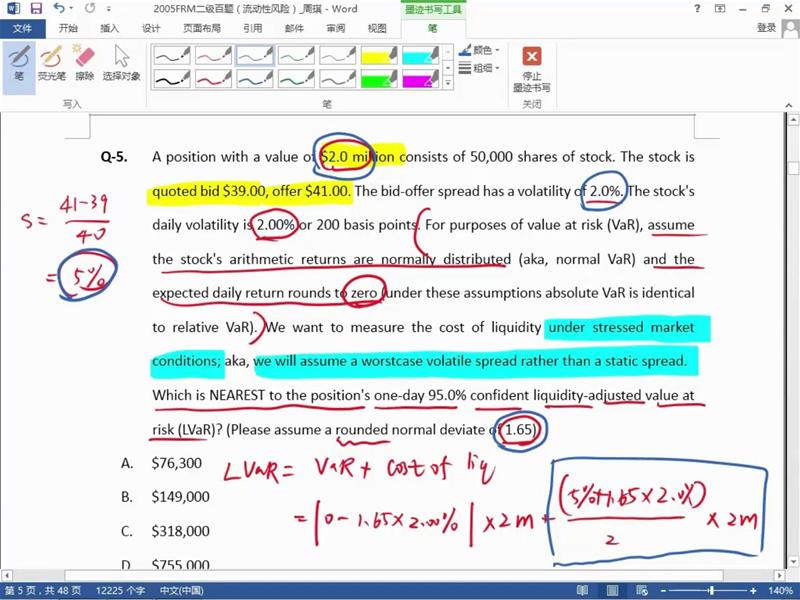 2005FRM二级百题（流动性风险）_周琪 - Word
墨迹书写工具
文件 开始 插入 设计 页面布局 引用 邮件 审阅 视图 笔 登录
笔 荧光笔 擦除 选择对象
颜色
粗细
停止
墨迹书写
写入 笔 关闭
Q-5. A position with a value of $2.0 million consists of 50,000 shares of stock. The stock is
quoted bid $39.00, offer $41.00. The bid-offer spread has a volatility of 2.0%. The stock's
daily volatility is 2.00% or 200 basis points. For purposes of value at risk (VaR), assume
the stock's arithmetic returns are normally distributed (aka, normal VaR) and the
expected daily return rounds to zero (under these assumptions absolute VaR is identical
to relative VaR). We want to measure the cost of liquidity under stressed market
conditions; aka, we will assume a worstcase volatile spread rather than a static spread.
Which is NEAREST to the position's one-day 95.0% confident liquidity-adjusted value at
risk (LVaR)? (Please assume a rounded normal deviate of 1.65)
S = 41-39
40
= 5%
A. $76,300
B. $149,000
C. $318,000
D. $755,000
LVaR = VaR + cost of liq
= |0 - 1.65 × 2.00%| × 2m + (5% + 1.65 × 2.0%)
2
× 2m
第 5 页，共 48 页 12225 个字 中文(中国) 140%